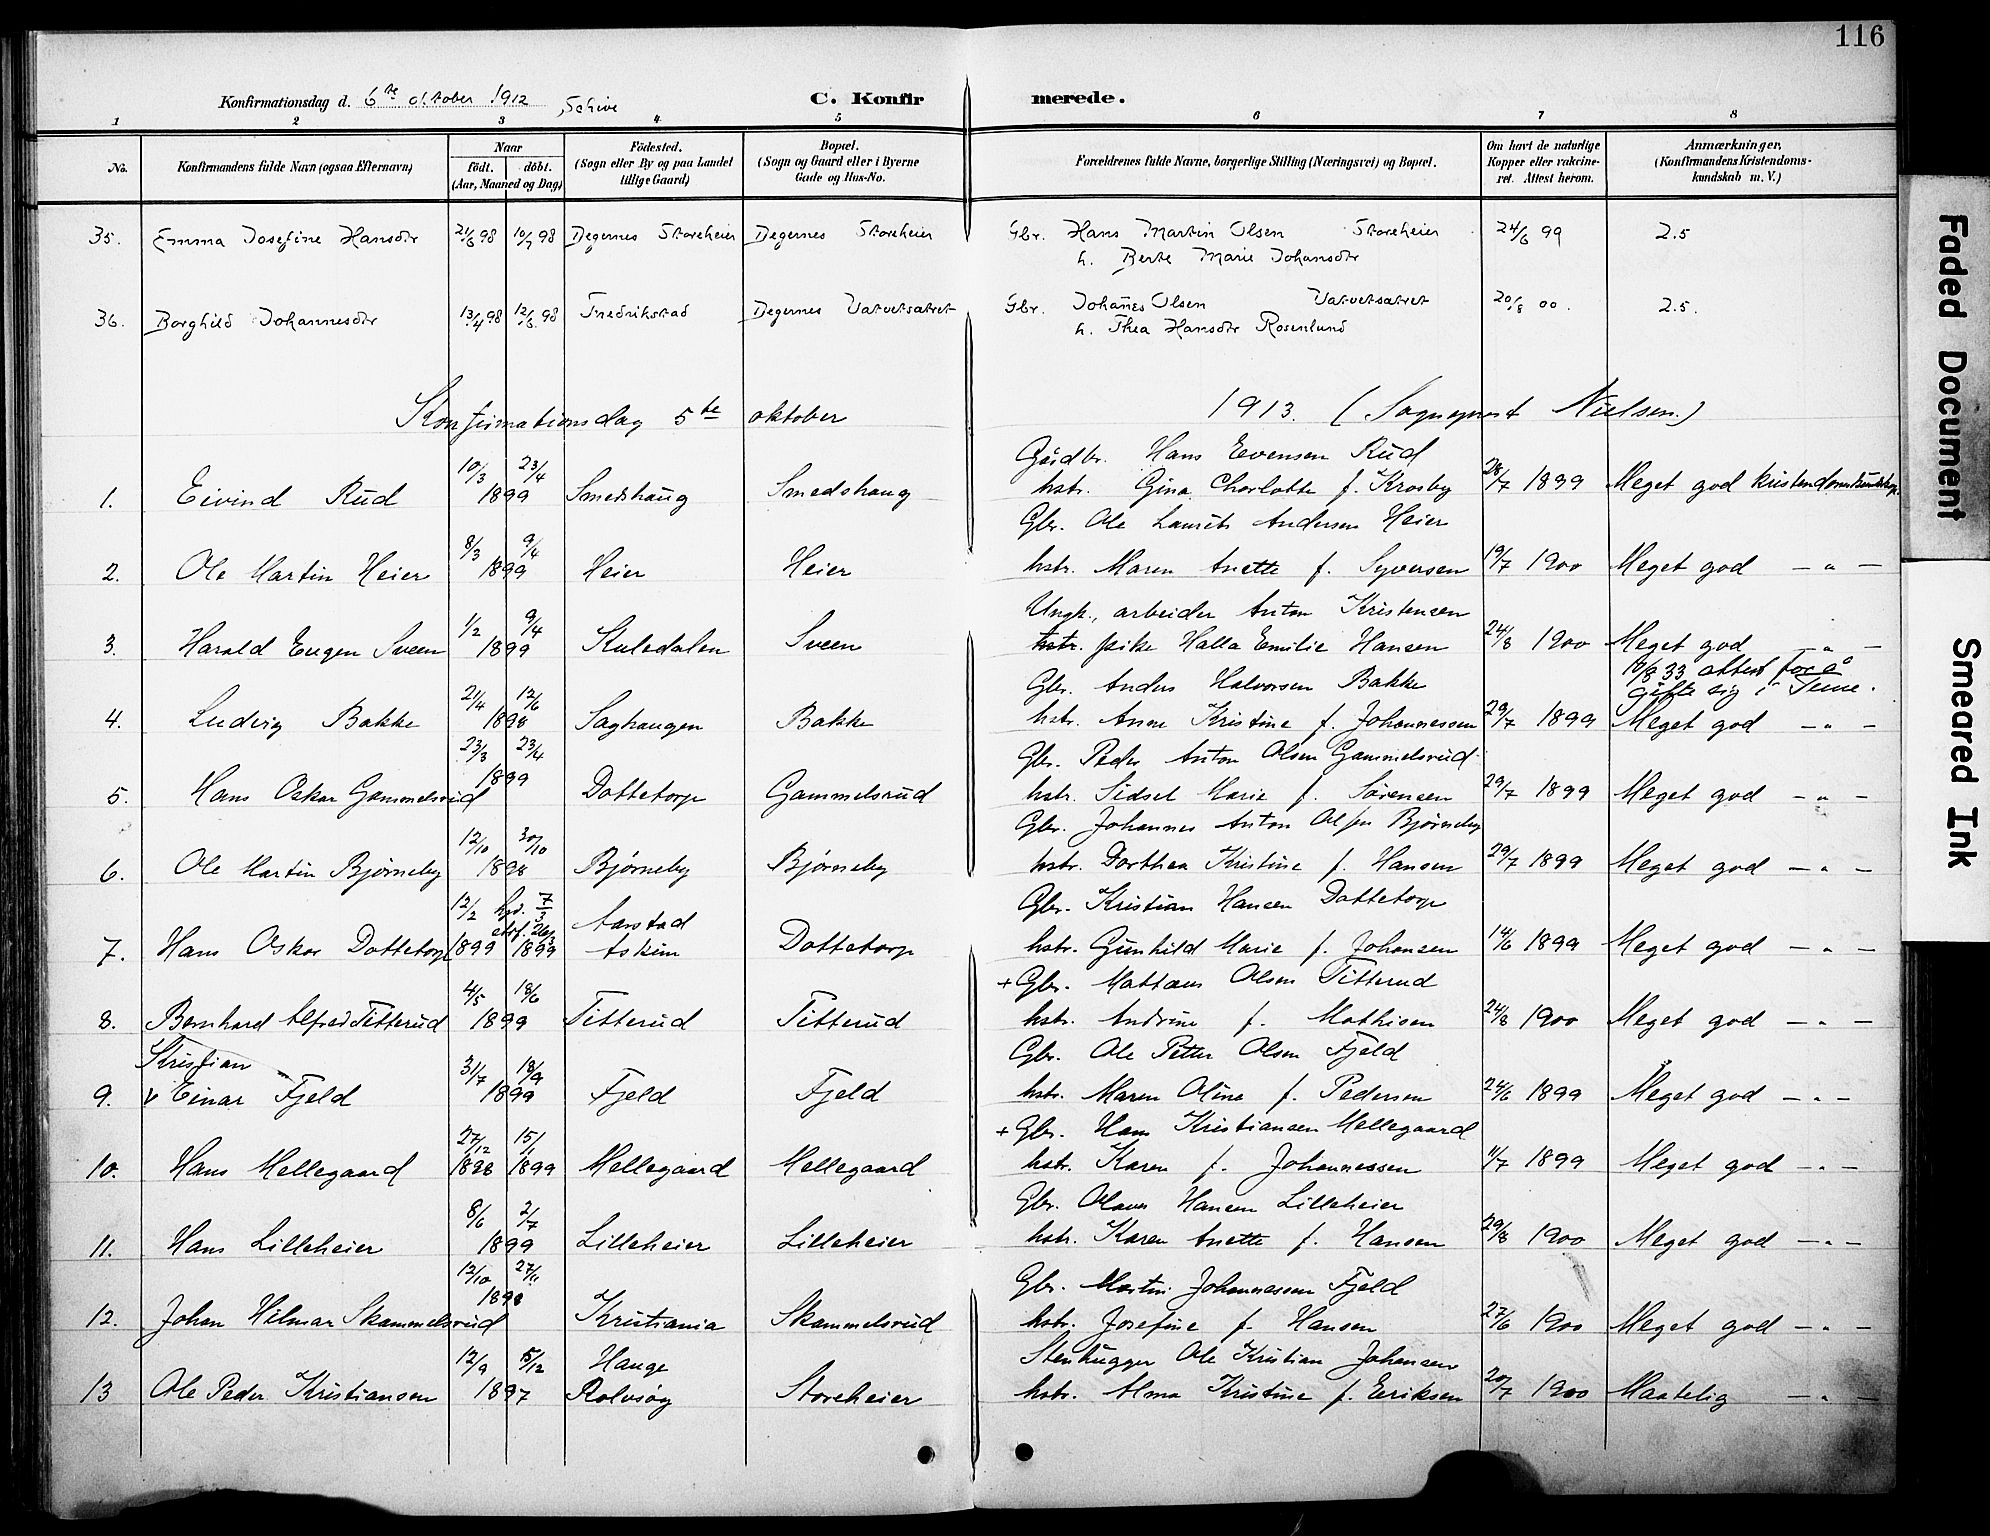 116
Konfirmationsdag d. 6te oktober 1912, Schive C. Konfirmerede.
1 2 3 4 5 6 7 8
No. Konfirmandens fulde Navn (ogsaa Efternavn) Naar født. døbt. (Aar, Maaned og Dag) Fødested. (Sogn eller By og paa Landet tillige Gaard) Bopæl. (Sogn og Gaard eller i Byerne Gade og Hus-No. Forældrenes fulde Navne, borgerlige Stilling (Næringsvei) og Bopæl. Om havt de naturlige Kopper eller vakcineret. Attest herom. Anmærkninger. (Konfirmandens Kristendomskundskab m. V.)
35. Emma Josefine Hansdtr 21/6 98 10/7 98 Degernes Storeheier Degernes Storeheier Gbr. Hans Martin Olsen Storeheier 24/6 99 2.5
h. Berte Marie Johansdtr
36. Borghild Johannesdtr 13/4 98 12/6 98 Fredrikstad Degernes Vatvetsætret Gbr. Johanes Olsen Vatvetsætret 20/8 00. 2.5.
h. Thea Hansdtr Rosenlund
Konfirmationsdag 5te oktober 1913. (Sogneprest Nielsen.)
Gårdbr. Hans Evensen Rud
1. Eivind Rud 10/3 23/4 1899 Smedshaug Smedshaug hstr. Gina Charlotte f. Krosby 28/7 1899 Meget god kristendomskundskap.
Gbr. Ole Laurits Andersen Heier
2. Ole Martin Heier 8/3 9/4 1899 Heier Heier hstr. Maren Anette f. Syversen 19/7 1900 Meget god — " —
Ungk., arbeider Anton Kristensen
3. Harald Eugen Sveen 1/2 9/4 1899 Skuledalen Sveen pike Halla Emilie Hansen 24/8 1900 Meget god — " —
10/8 33 attest for å gifte sig i
Gbr. Anders Halvorsen Bakke
4. Ludvig Bakke 21/4 12/6 1898 Saghaugen Bakke hstr. Anne Kristine f. Johannessen 29/7 1899 Meget god — " —
Gbr. Peder Anton Olsen Gammelsrud
5. Hans Oskar Gammelsrud 23/3 23/4 1899 Dottetorp Gammelsrud hstr. Sidsel Marie f. Sørensen 29/7 1899 Meget god — " —
Gbr. Johannes Anton Olsen Bjørneby
6. Ole Martin Bjørneby 12/10 30/10 1898 Bjørneby Bjørneby hstr. Dorthea Kristine f. Hansen 29/7 1899 Meget god — " —
Gbr. Kristian Hansen Dottetorp
7. Hans Oskar Dottetorp 12/2 1899 hjd. 7/3 1899 Aarstad Askim Dottetorp hstr. Gunhild Marie f. Johansen 14/6 1899 Meget god — " —
+ Gbr. Mattæus Olsen Titterud
8. Bernhard Alfred Titterud 4/5 18/6 1899 Titterud Titterud hstr. Andrine f. Mathisen 24/8 1900 Meget god — " —
Kristian
Gbr. Ole Petter Olsen Fjeld
9. Einar Fjeld 31/7 18/9 1899 Fjeld Fjeld hstr. Maren Oline f. Pedersen 24/6 1899 Meget god — " —
+ Gbr. Hans Kristiansen Mellegaard
10. Hans Mellegaard 27/12 1898 15/1 1899 Mellegaard Mellegaard hstr. Karen f. Johannessen 11/7 1899 Meget god — " —
Gbr. Olaus Hansen Lilleheier
11. Hans Lilleheier 8/6 2/7 1899 Lilleheier Lilleheier hstr. Karen Anette f. Hansen 29/8 1900 Meget god — " —
Gbr. Martin Johannessen Fjeld
12. Johan Hilmar Skammelsrud 12/10 27/11 1898 Kristiania Skammelsrud hstr. Josefine f. Hansen 27/6 1900 Meget god — " —
Stenhugger Ole Kristian Johansen
13 Ole Peder Kristiansen 12/9 5/12 1897 Hauge Rolvsøy Storeheier hstr. Alma Kristine f. Eriksen 20/7 1900 Maatelig — " —
Faded Document
Smeared Ink